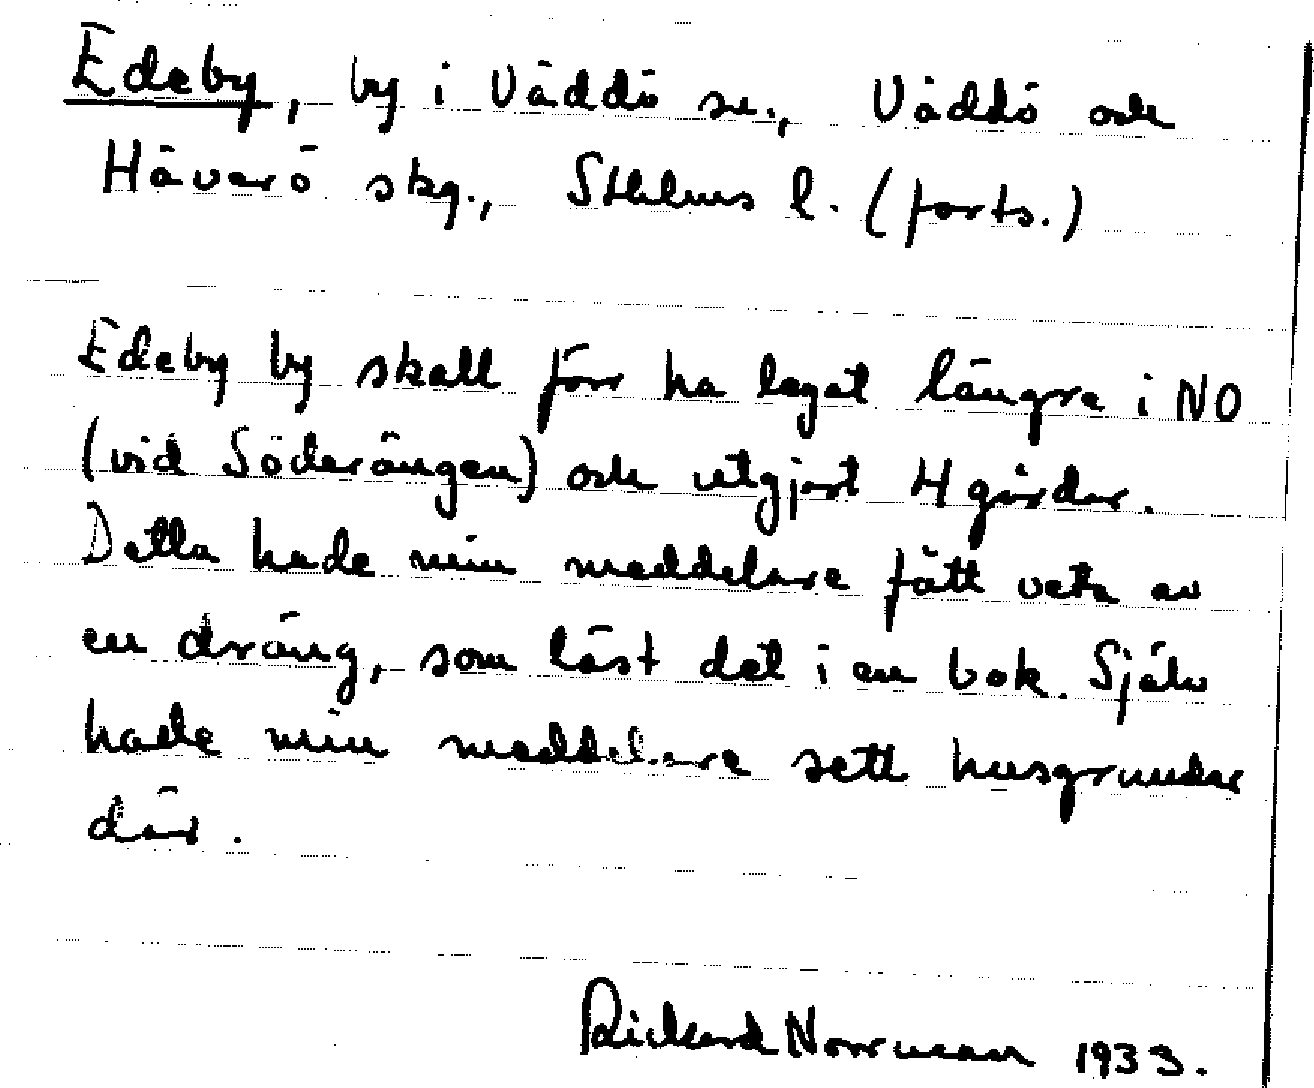 Edeby, by i Väddö sn., Väddö och
Häverö skg., Sthlms l. (forts.)
Edeby by skall förr ha legat längre i NO
(vid Söderängen) och utgjort 4 gårdar.
Detta hade min meddelare fått veta av
en dräng, som läst det i en bok. Själv
hade min meddelare sett husgrunder
där.
Rickard Norrman 1933.